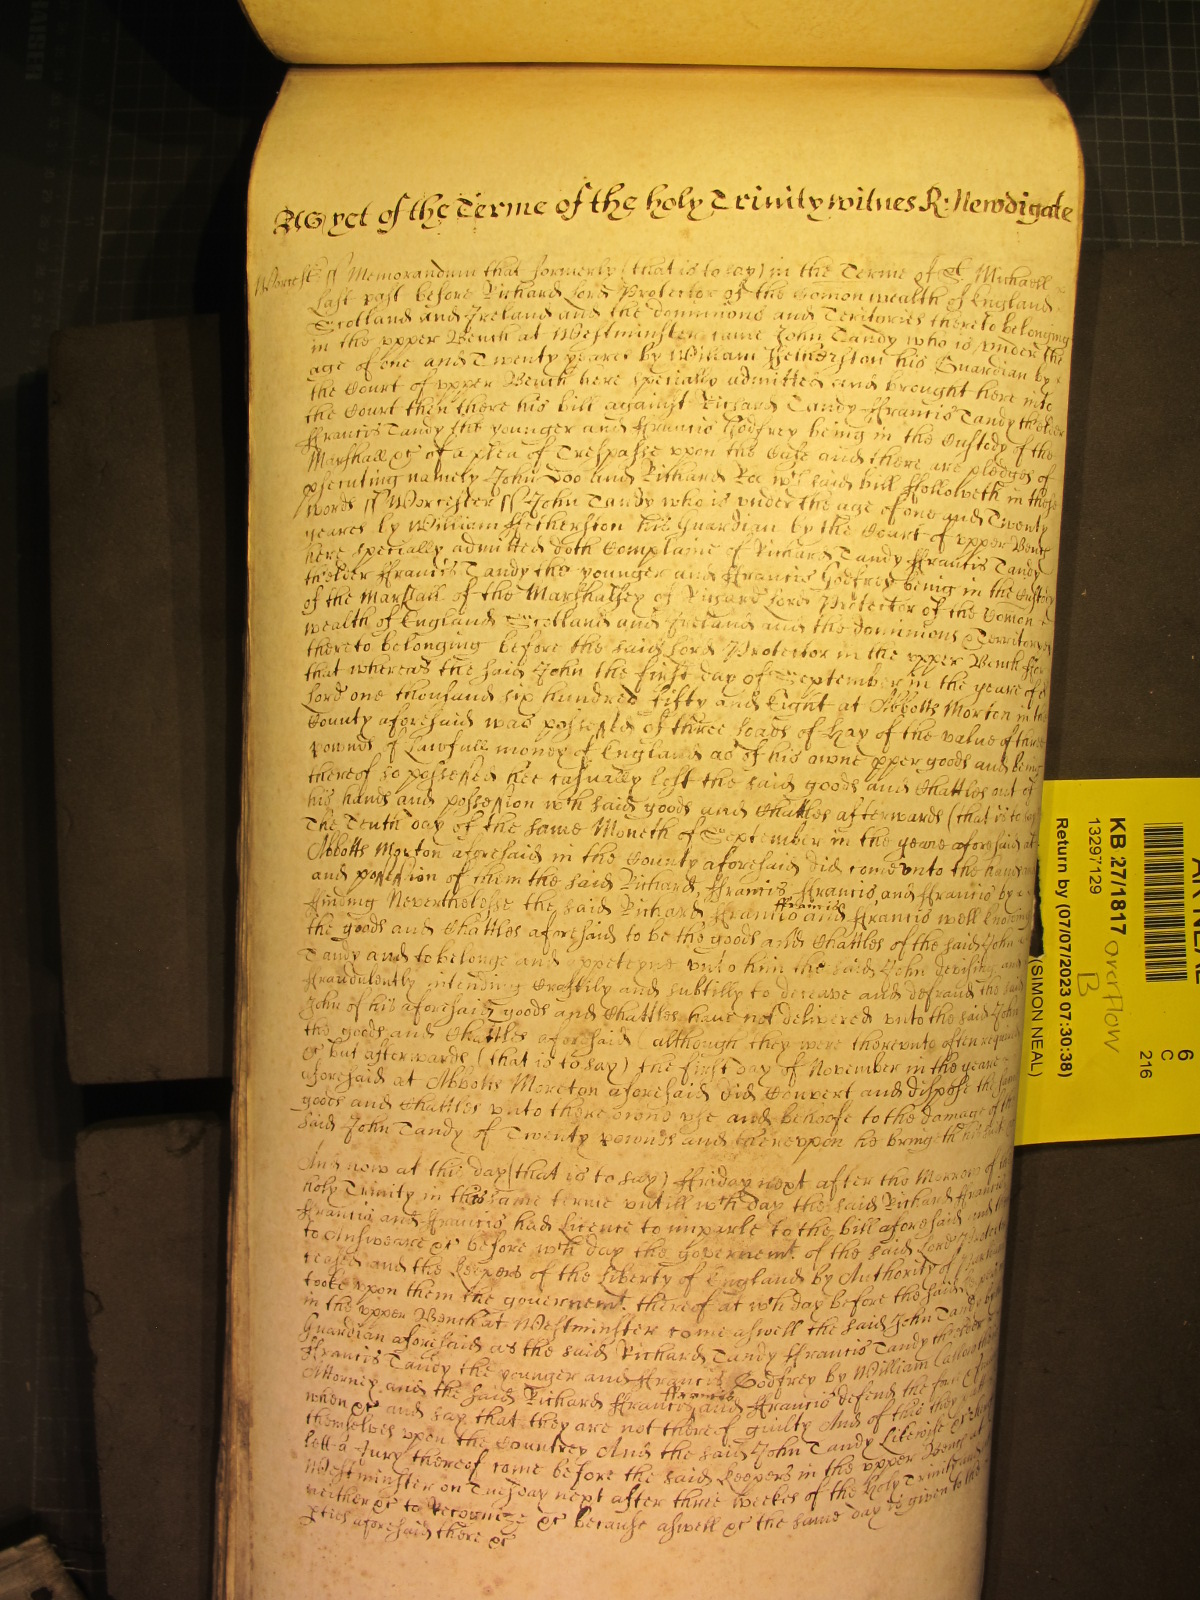 As yet of the Terme of the holy Trinity witnes R: Newdigate
Worcest:r ss Memorandum that formerly (that is to say) in the Terme of St. Michaell
Last past before Richard Lord Protector of the Comon wealth of England
Scotland and Ireland and the dominions and Territories thereto belonging
in the vpper Bench at Westminster came John Tandy who is vnder the
age of one and Twenty yeares by William Fetherston his Guardian by
the Court of vpper Bench here specially admitted and brought here into
the Court then there his bill against Richard Tandy Francis Tandy thelder
Francis Tandy the younger and Francis Godfrey being in the Custody of the
Marshall &c of a plea of Trespasse vpon the Case and there are pledges of
psecuting namely John Doo and Richard Roo wch said bill Followeth in these
words ss Worcester ss John Tandy who is vnder the age of one and Twenty
yeares by William Fetherston his Guardian by the Court of vpper Bench
here specially admitted doth Complaine of Richard Tandy Francis Tandy
thelder Francis Tandy the younger and Francis Godfrey being in the Custody
of the Marshall of the Marshalsey of Richard Lord Protector of the Comon
wealth of England Scotland and Ireland and the dominions & Territories
thereto belonging before the said Lord Protector in the vpper Bench For
that whereas the said John the first day of September in the yeare of
Lord one thousand six hundred fifty and Eight at Abbotts Morton in the
County aforesaid was possessed of three Loads of Hay of the value of three
pownds of Lawfull money of England as of his owne pper goods and being
thereof so possessed hee casually lost the said goods and Chattles out of
his hands and possession wch said goods and Chattles afterwards (that is to say)
The Tenth day of the same Moneth of September in the yeare aforesaid at
Abbotts Morton aforesaid in the County aforesaid did come vnto the hands
and possession of them the said Richard, Francis, Francis, and Francis by
finding Neverthelesse the said Richard Francis Francis and Francis well knowing
the goods and Chattles aforesaid to be the goods and Chattles of the said John
Tandy and to belonge and appeteyne vnto him the said John devising and
fraudulently intending Craftily and subtilly to deceave and defraud the said
John of his aforesaid goods and Chattles have not delivered vnto the said John
the goods and Chattles aforesaid (although they were therevnto often required
&c but afterwards (that is to say) the first day of November in the yeare
aforesaid at Abbotts Moreton aforesaid did Convert and dispose the same
goods and Chattles vnto there owne vse and behoofe to the damage of the
said John Tandy of Twenty pownds and therevpon he bringeth his suit
And now at this day (that is to say) Friday next after the Morrow of the
holy Trinity in this same terme vntill wch day the said Richard Francis
Francis and Francis had Licence to imparle to the bill aforesaid and
to Answeare &c before wch day the governemt. of the said Lord Protector
ceased and the Keepers of the Liberty of England by Authority of
tooke vpon them the governemt. thereof at wch day before the said
in the vpper Bench at Westminster come aswell the said John Tandy by
Guardian aforesaid as the said Richard Tandy Francis Tandy thelder
Francis Tandy the younger and Francis Godfrey by William
Attorney and the said Richard Francis Francis and Francis defend the
when &c and say that they are not thereof guilty And of this they
themselves vpon the Countrey And the said John Tandy Likewise &c
lett a Jury thereof come before the said Keepers in the vpper Bench at
Westminster on Tuesday next after three weekes of the Holy Trinity
neither &c to Recognize &c because aswell &c the same day is given to the
pties aforesaid there &c
KB 27/1817
13297129
Return by (07/07/2023 07:30:38)
(SIMON NEAL)
overflow
B
6
C
216